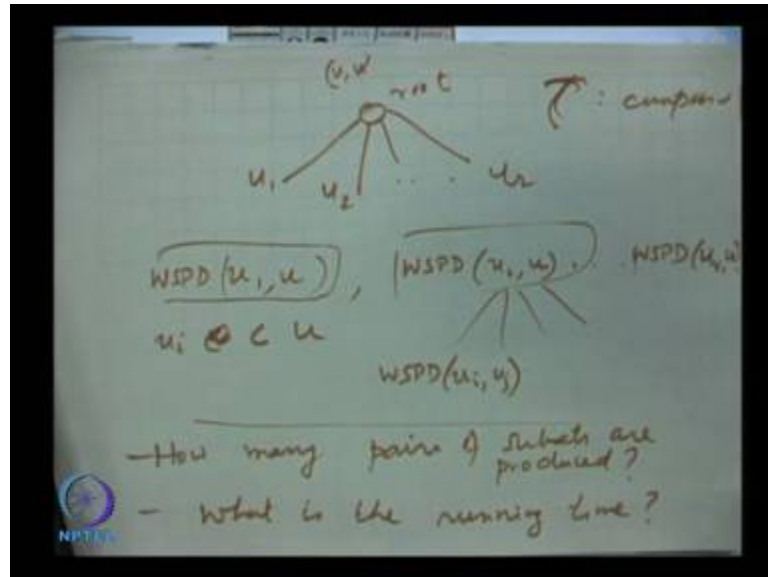 (u, u)
root
T : compres
u₁ u₂ . . . . uᵣ
WSPD(u₁, u) , WSPD(uᵢ, u) . . WSPD(uᵣ, u)
uᵢ ⊂ u
WSPD(uᵢ, uⱼ)
- How many pairs of subsets are
produced?
- What is the running time?
NPTEL